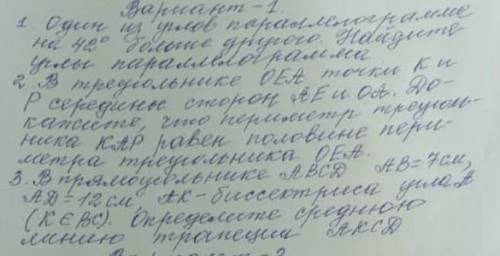 Вариант-1.
1. Один из углов параллелограмма
на 42° больше другого. Найдите
углы параллелограмма.
2. В треугольнике ОЕА точки К и
Р середины сторон АЕ и ОА. До-
кажите, что периметр треуголь-
ника КАР равен половине пери-
метра треугольника ОЕА.
3. В прямоугольнике ABCD AB=7см,
AD=12см, АК-биссектриса угла А
(К∈ВС). Определите среднюю
линию трапеции AKCD.